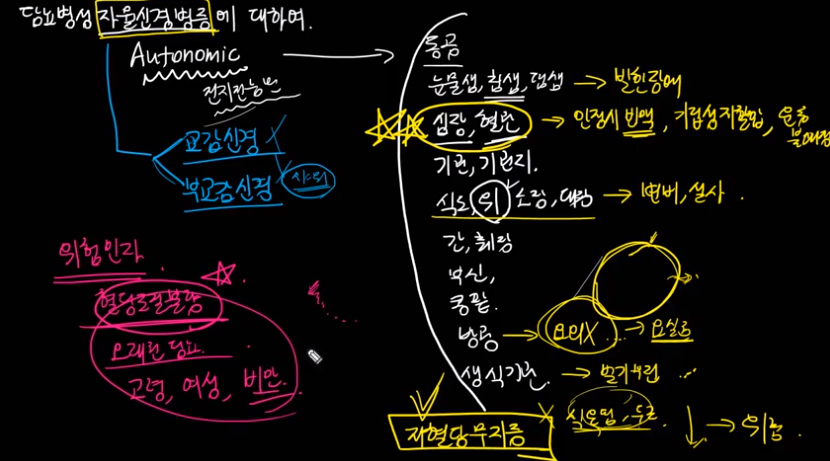 당뇨병성 자율신경병증에 대하여.
Autonomic
전지전능한
교감신경
부교감신경
위험인자.
혈당조절불량
오래된 당뇨.
고령, 여성, 비만.
동공
눈물샘, 침샘, 땀샘 → 발한장애
심장, 혈관 → 안정시 빈맥, 기립성저혈압, 운동
기관, 기관지.
식도, 위, 소장, 대장 → 변비, 설사.
간, 췌장
부신,
콩팥.
방광 → 요의X → 요실금
생식기관 → 발기부전
저혈당무지증 식은땀, 두근 ↓ → 위험.